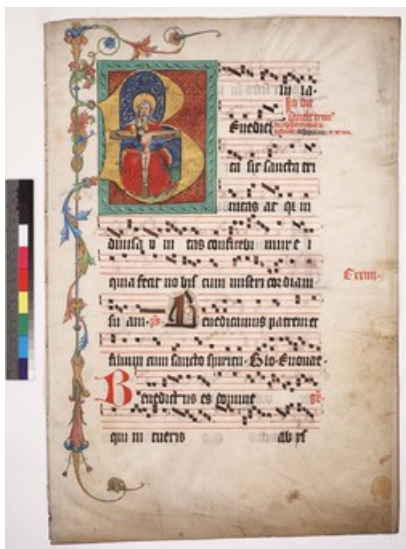 in ia.
In die
Benedict
ta sit sancta tri
nitas at qi in
diuisa v in tas confitebi mur e i
quia fecit no bis cum miseri cordiam
su am. ps. Benedicimus patrem et
filium cum sancto spiritu. Glo. Euouae.
Benedict us es domine gr.
qui in tueris ab ys